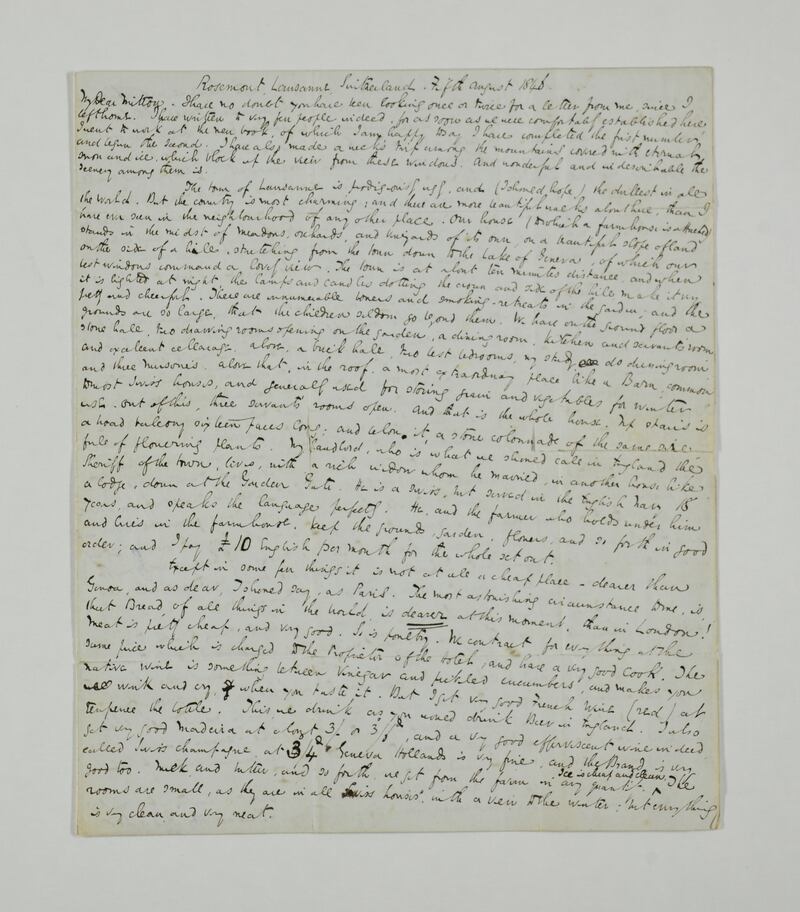 Rosemont, Lausanne, Switzerland. 7th August 1846
My Dear Mitton. I have no doubt you have been looking once or twice for a letter from me, since I
left home. I have written to very few people indeed, for as soon as we were comfortably established here
I went to work at the new book, of which I am happy to say I have completed the first number,
and begun the second. I have also made a week's trip among the mountains covered with eternal
snow and ice, which block up the view from these windows. And wonderful and indescribable the
scenery among them is.
The town of Lausanne is prodigiously ugly, and (I should hope) the dullest in all
the world. But the country is most charming; and there are more beautiful walks about here, than I
have ever seen in the neighbourhood of any other place. Our house (to which a farmhouse is attached)
stands in the midst of meadows, orchards, and vineyards of its own, on a beautiful slope of land
on the side of a hill, stretching from the town down to the Lake of Geneva, of which our
best windows command a lovely view. The town is at about ten minutes distance, and when
it is lighted at night, the lamps and candles dotting the crown and side of the hill make it very
pretty and cheerful. There are innumerable bowers and smoking-retreats in the garden; and the
grounds are so large, that the children seldom go beyond them. We have on the ground floor a
stone hall, two drawing rooms opening on the garden, a dining room, kitchen and servants' room
and excellent cellarage. above, a brick hall, two best bedrooms, my study do dressing room
and three nurseries. above that, in the roof, a most extraordinary place like a Barn, common
to most Swiss houses, and generally used for storing grain and vegetables for winter
use. out of this, three servants rooms open. And that is the whole house. Up stairs is
a broad balcony sixteen paces long; and below it, a stone colonnade of the same size
full of flowering plants. My Landlord, who is what we should call in England the
Sheriff of the town, lives, with a rich widow whom he married, in another house like
a lodge, down at the Garden Gate. He is a Swiss, but served in the English Navy 18
years, and speaks the language perfectly. He, and the farmer who holds under him
and lives in the farmhouse, keep the grounds, garden, flowers, and so forth in good
order; and I pay £10 English per month for the whole set out.
Except in some few things it is not at all a cheap place – dearer than
Genoa, and as dear, I should say, as Paris. The most astonishing circumstance to me, is,
that Bread, of all things in the world, is dearer at this moment, than in London!
Meat is pretty cheap, and very good. So is poultry. We contract for everything at the
same price which is charged to the Proprietor of the hotel, and have a very good cook. The
native wine is something between vinegar and pickled cucumbers, and makes you
wink and cry when you taste it. But I get very good French wine (red) at
tenpence the bottle. This we drink as you would drink Beer in England. I also
get very good Madeira at about 3/ or 3/, and a very good effervescent wine indeed
called Swiss champagne, at 3 4d. Geneva Hollands is very fine, and the Brandy is very
good too. Milk and butter, and so forth, we get from the farm in any quantity. Ice is cheap and clean. The
rooms are small, as they are in all Swiss houses, with a view to the winter; but everything
is very clean and very neat.